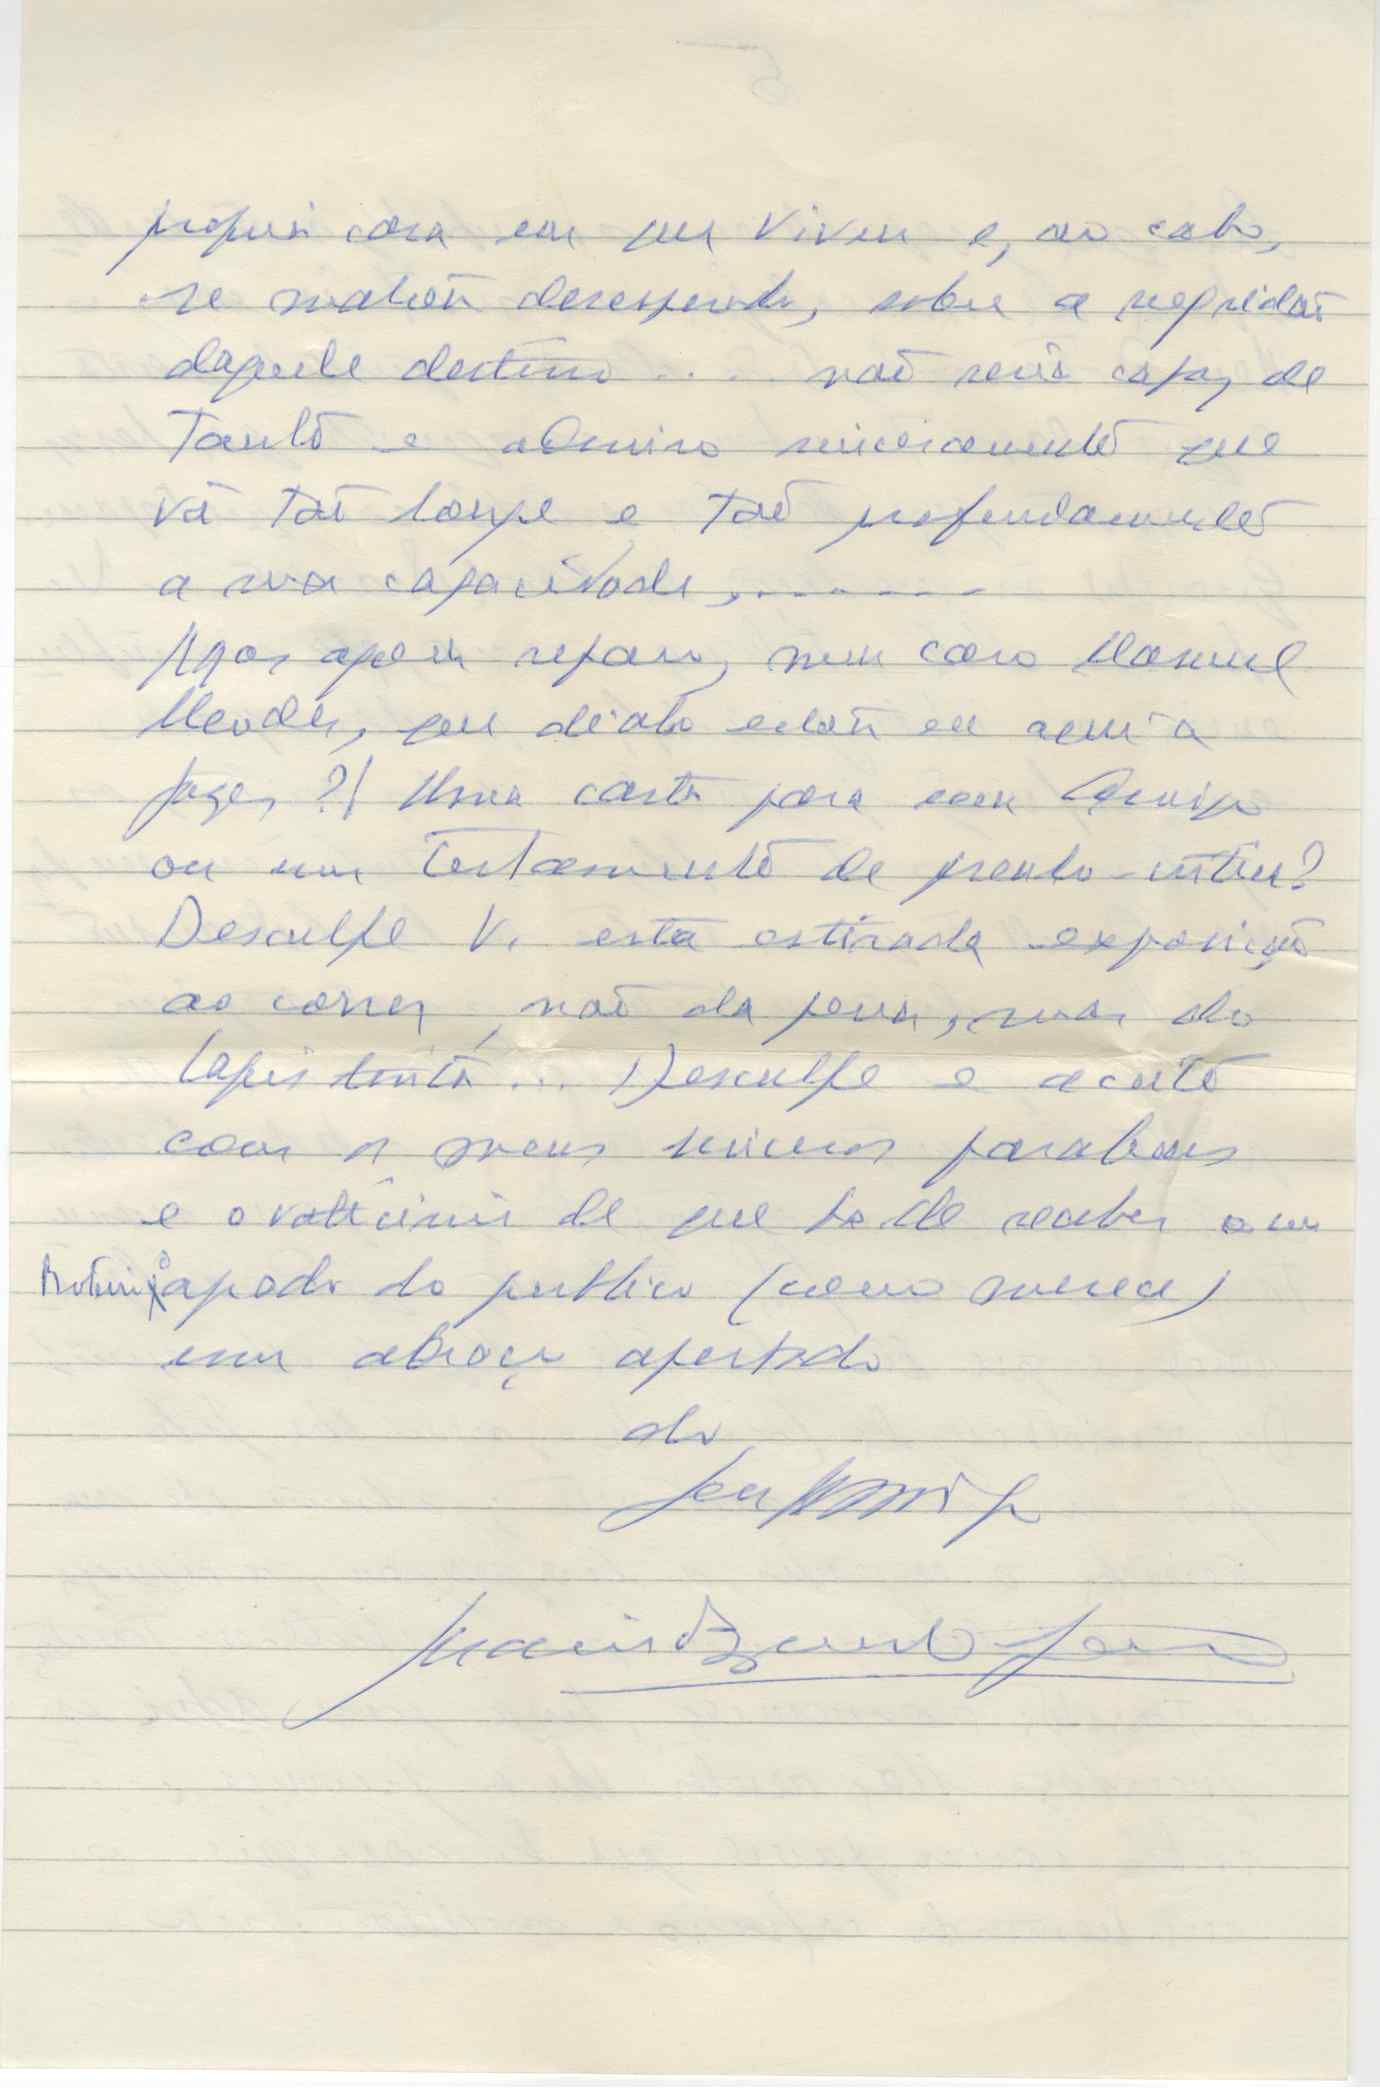 5
propria casa em que viveu e, ao cabo,
se matou desesperado, sobre a
daquele destino .... não seria capaz de
tanto e admiro sinceramente que
vá tão longe e tão profundamente
a sua capacidade, .......
Mas agora reparo, meu caro Manuel
Mendes, que diabo estou eu aqui a
fazer?! Uma carta para um Amigo
ou um testamento de
Desculpe V. esta estirada exposição
ao correr, não da pena, mas do
lapis tinta... Desculpe e aceite
com os meus sinceros parabens
e o vaticinio de que ha de receber o seu
apodo do publico (como merece)
um abraço apertado
do
seu Amigo